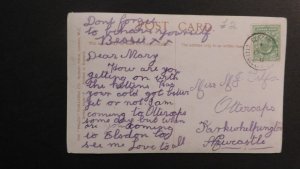 Dont forget
to behave yourself
Bessie xx
POST CARD
£2
Dear Mary
How are you
getting on with
the
has
your cold got better
yet or not I am
coming to Otterops
some day but when
are coming
to Elsdon to
see me Love to all
Miss M J
Otterops
Kirkwhelpington
Newcastle